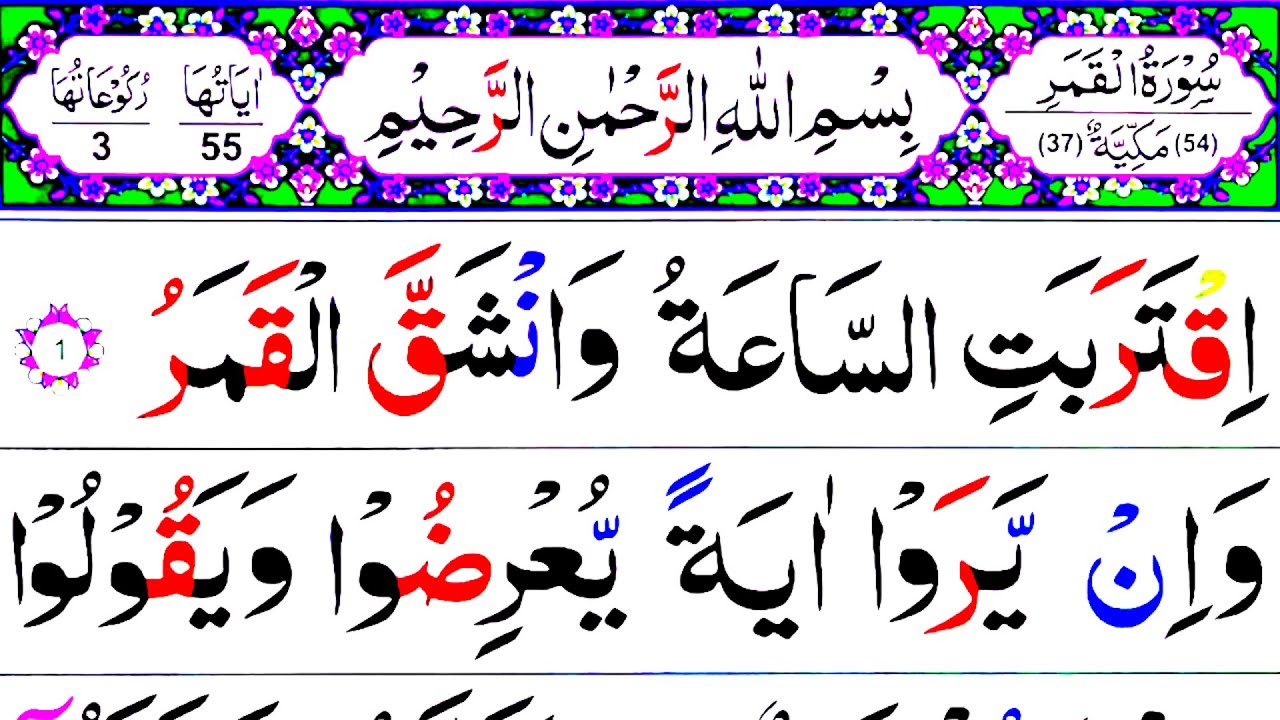 سُوْرَةُ الْقَمَرِ
(54) مَكِّيَّةٌ (37)
بِسْمِ اللّٰهِ الرَّحْمٰنِ الرَّحِيْمِ
اٰيَاتُهَا 55
رُكُوْعَاتُهَا 3
اِقْتَرَبَتِ السَّاعَةُ وَانْشَقَّ الْقَمَرُ 1
وَاِنْ يَّرَوْا اٰيَةً يُّعْرِضُوْا وَيَقُوْلُوْا